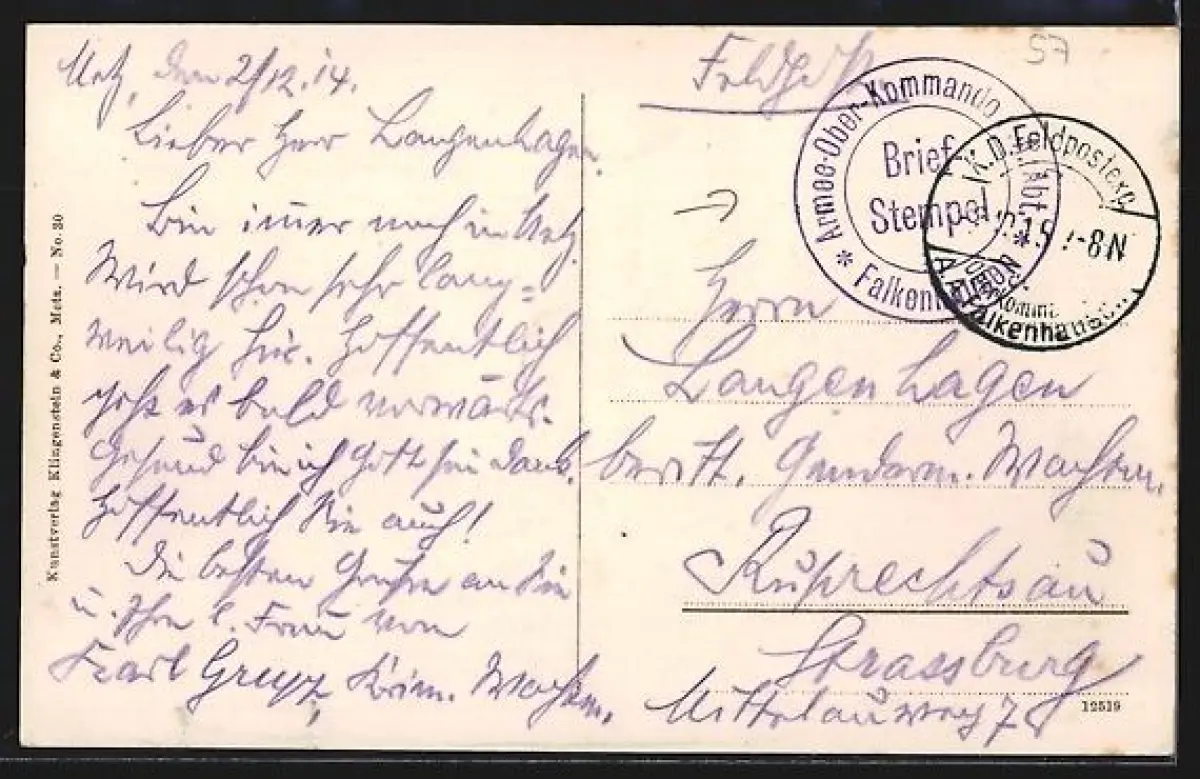 Metz, den 2/12.14.
Lieber Herr Langenhagen
Bin immer noch in Metz.
Wird schon sehr lang=
weilig hir. Hoffentlich
geht es bald vorwärts.
Gesund bin ich Gott sei Dank.
Hoffentlich Sie auch!
Die besten Grüße an Sie
u. Ihre l. Frau von
Karl Grupp, Krim. Wachtm.
Kunstverlag Klingenstein & Co., Metz. — No. 30
Feldpost
57
Armee-Ober-Kommando
Abt.
* Falkenhausen *
Brief
Stempel
K.D. Feldpostexp.
7-8N
Falkenhausen
Herrn
Langenhagen
beritt. Gendarm. Wachtm.
Ruprechtsau
Strassburg
Mittelauweg 78
12519